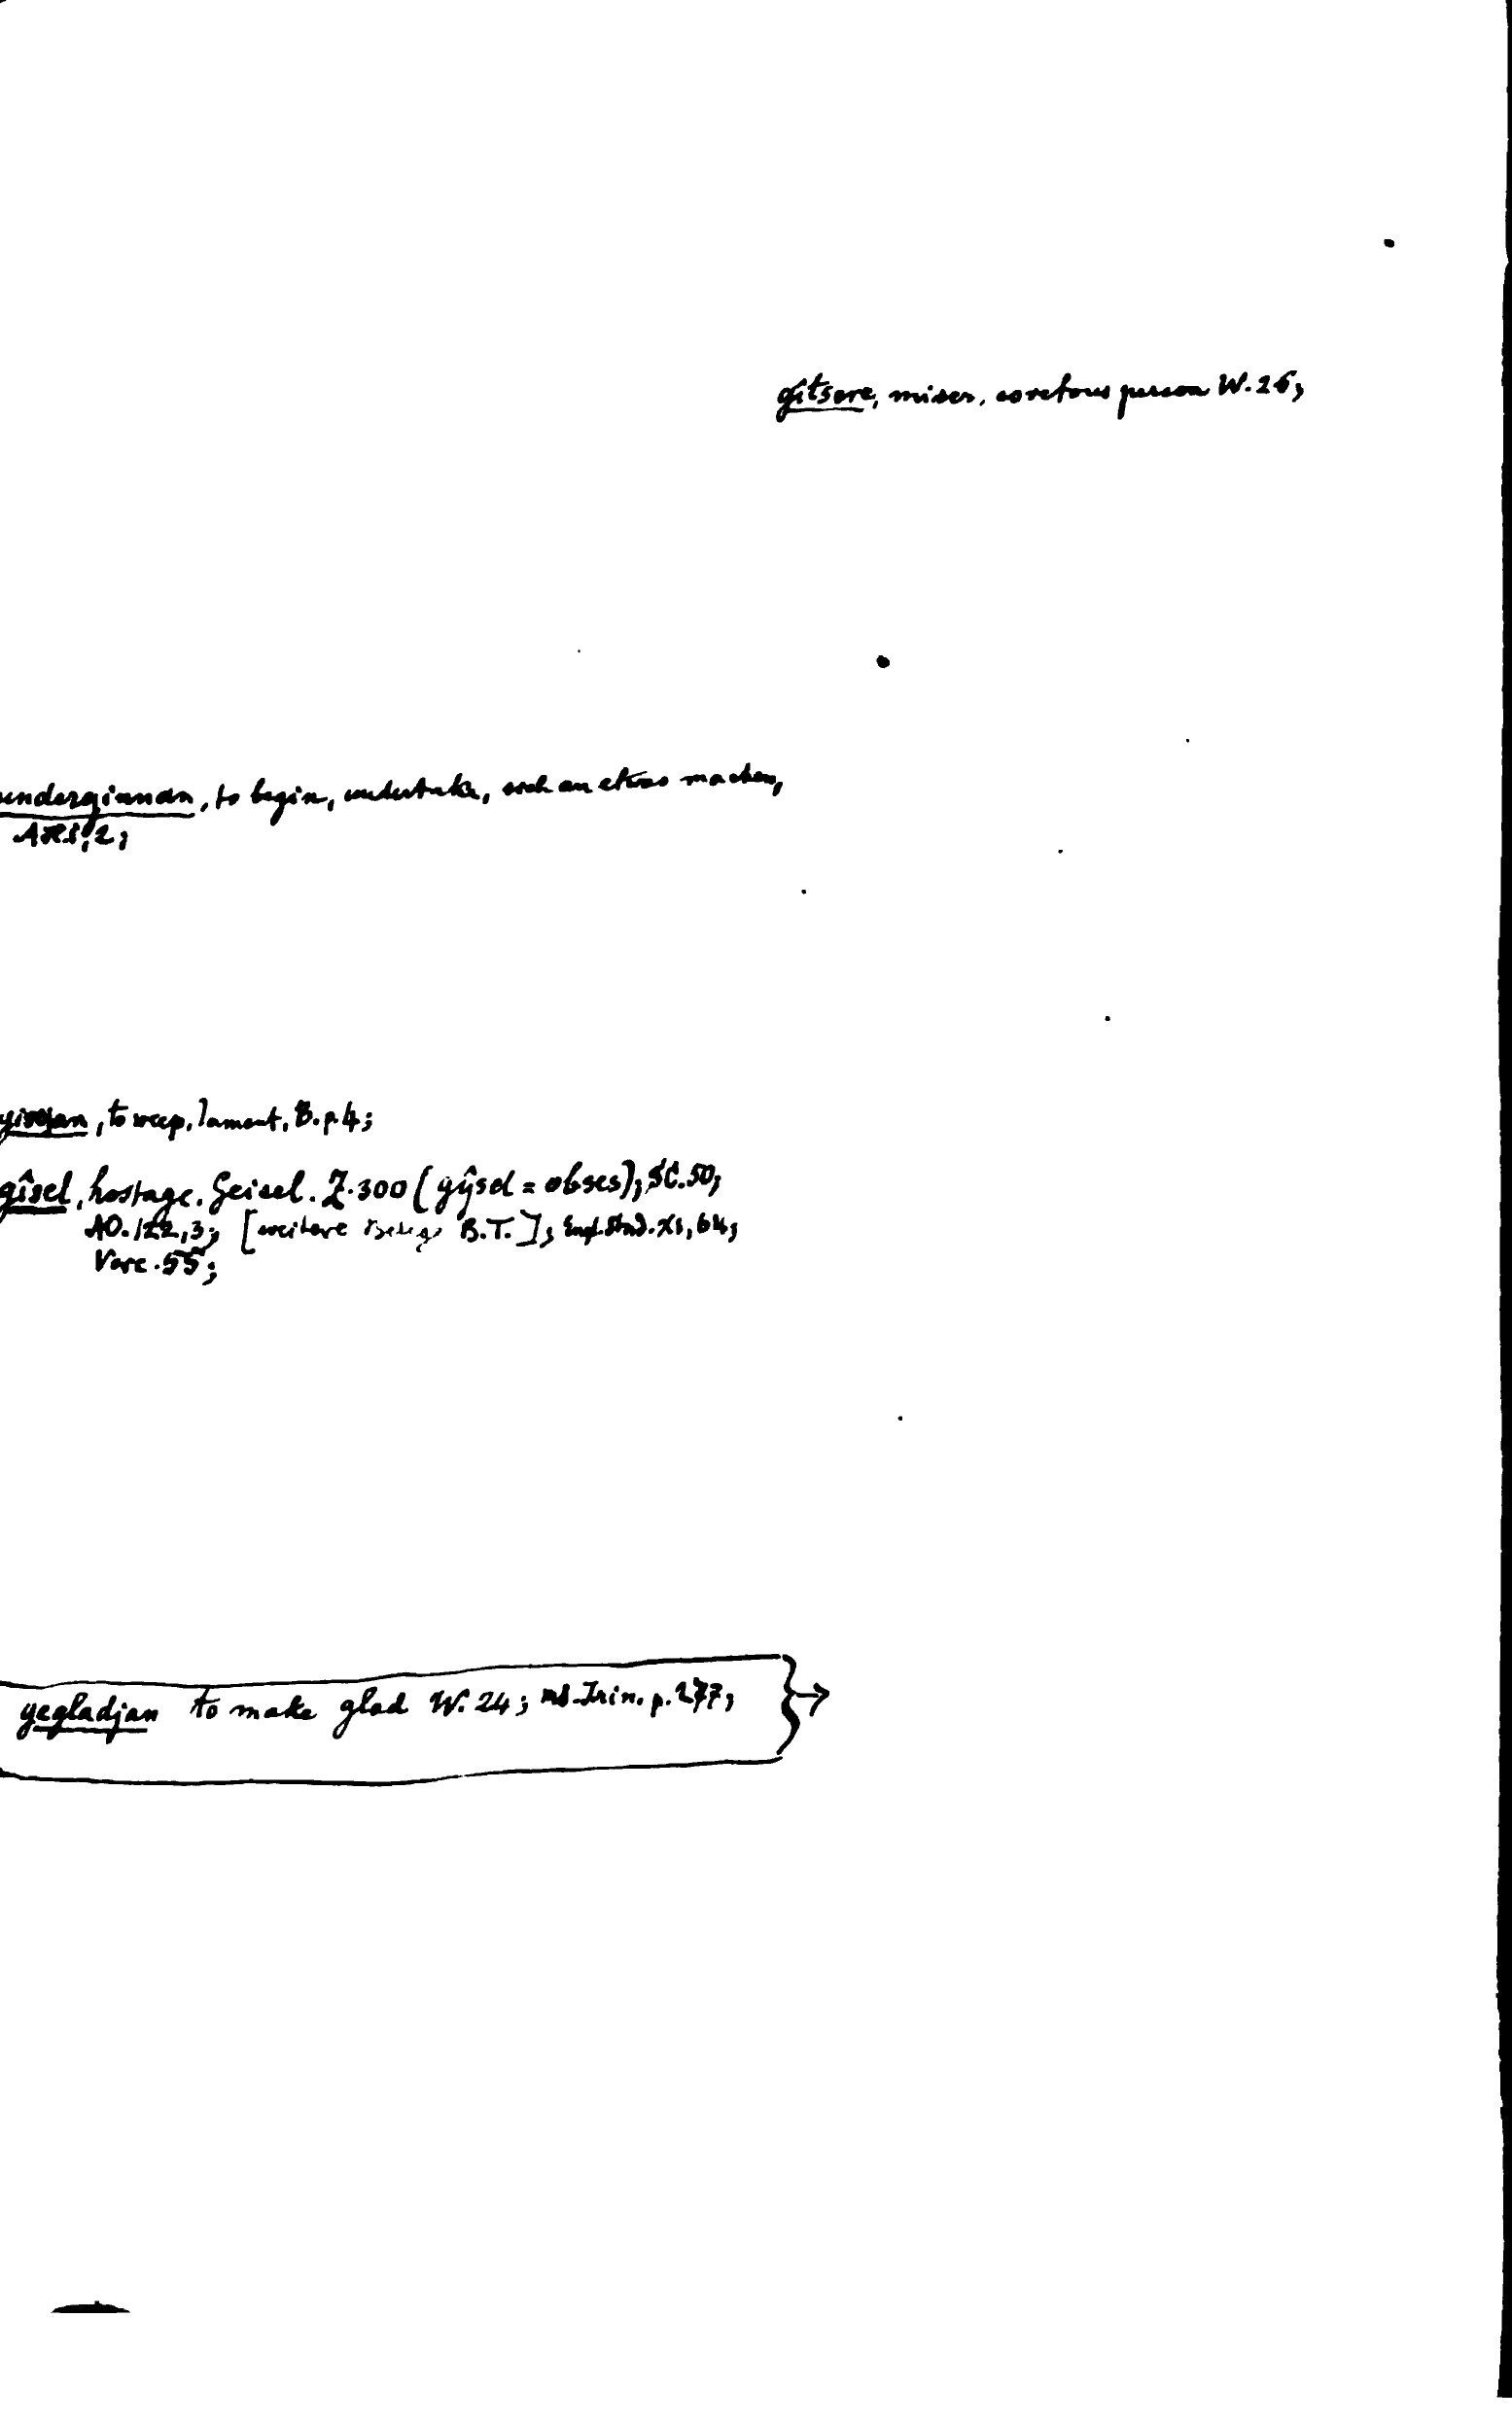 gîtsere, miser, covetous person W. 26;
underginnan, to begin, undertake, sich an etwas machen,
, 2;
to weep, lament, B. p. 4;
gîsel, hostage. Geisel. Z. 300 (gŷsel = obses); SC. 50;
AO. 122, 3; [weitere Belege B.T.]; Engl. Stud. XI, 64;
55;
gegladjan to make glad W. 24; MS. Trin. p. 277;